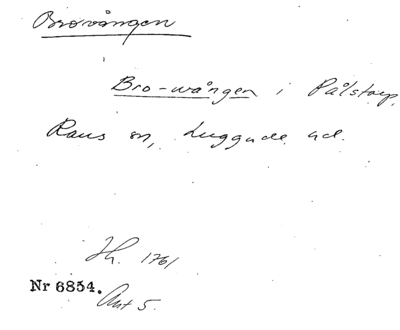 Brovången
Bro-wången i Pålstorp,
Raus sn, Luggude hd.
Jh. 1761
Nr 6854.
Ant 5.